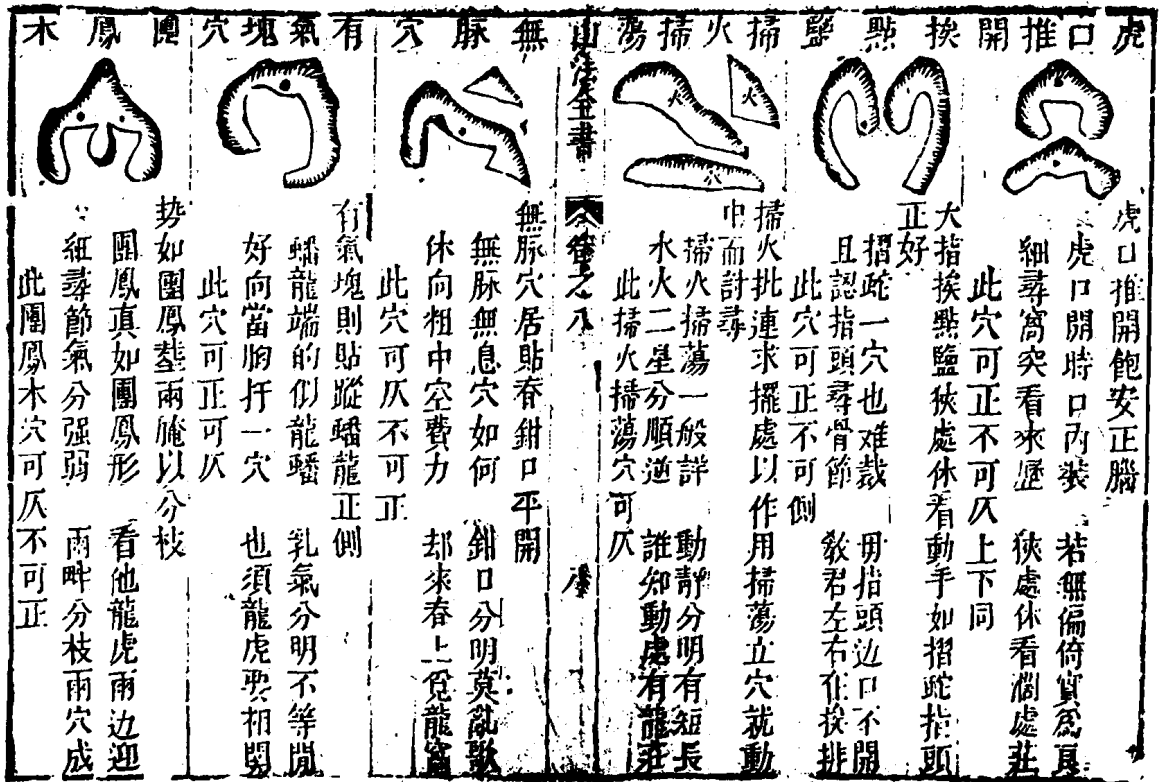 虎口推開
虎口推開飽安正腦
虎口開時口內裝 若無偏倚實爲良
細尋窩突看來歷 狹處休看濶處莊
此穴可正不可仄上下同
挨點鹽
大指挨點鹽狹處休看動手如摺䖳指頭
正好
摺䖳一穴也难裁 毋指頭边口不開
且認指頭尋骨節 教君左右在挨排
此穴可正不可側
掃火掃蕩
掃火批連求擺處以作用掃蕩立穴就動
中而討尋
掃火掃蕩一般詳 動靜分明有短長
水火二星分順逆 誰知動處有龍莊
此掃火掃蕩穴可仄
火
火
穴
山法全書
卷之八
無脉穴
無脉穴居貼脊鉗口平開
無脉無息穴如何 鉗口分明莫亂歌
休向粗中空費力 却來脊上覓龍窩
此穴可仄不可正
有氣塊穴
有氣塊則貼蹤蟠龍正側
蟠龍端的似龍蟠 乳氣分明不等閒
好向當胸扦一穴 也須龍虎要相関
此穴可正可仄
團鳳木
势如團鳳莖兩腌以分枝
團鳳真如團鳳形 看他龍虎兩边迎
細尋節氣分强弱 兩畔分枝兩穴成
此團鳳木穴可仄不可正